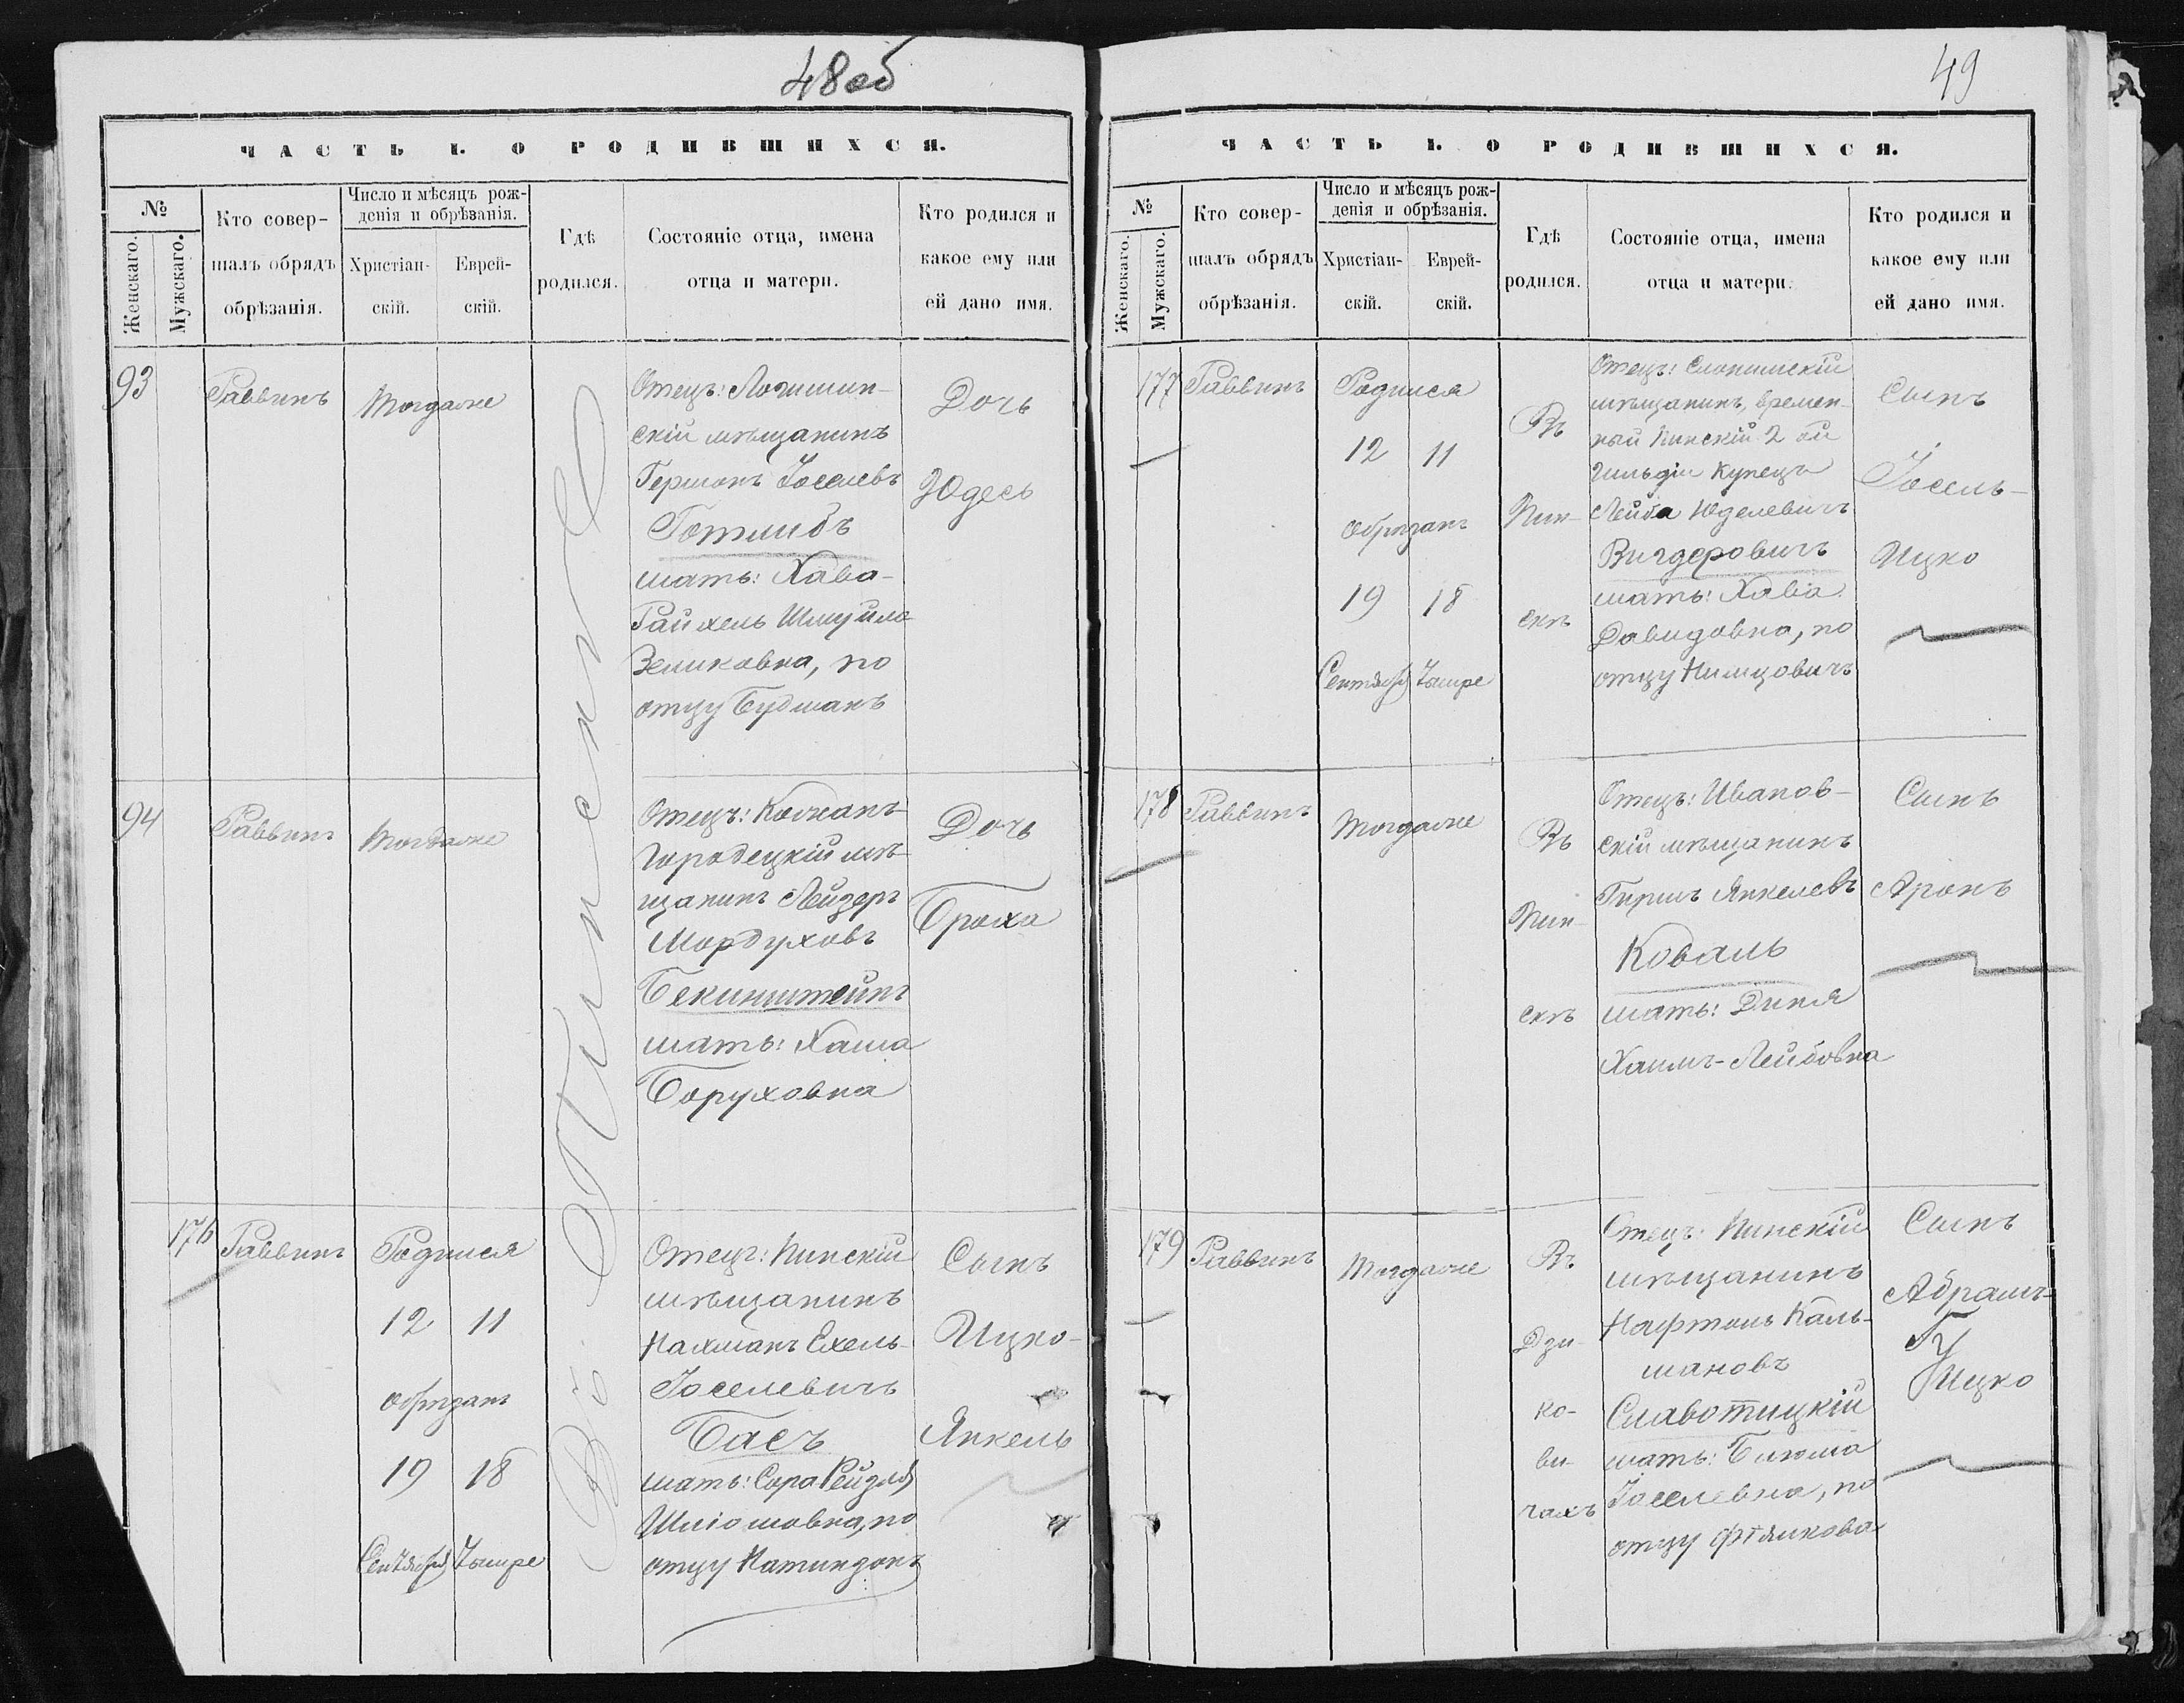 48 об
ЧАСТЬ I. О РОДИВШИХСЯ.
№
Женскаго.
Мужскаго.
Кто совер-
шалъ обрядъ
обрѣзанія.
Число и мѣсяцъ рож-
денія и обрѣзанія.
Христіан-
скій.
Еврей-
скій.
Гдѣ
родился.
Состояніе отца, имена
отца и матери.
Кто родился и
какое ему или
ей дано имя.
93
Раввинъ
Тогдаже
Въ Пинскѣ
Отецъ: Логишин-
скій мѣщанинъ
Гершонъ Іоселевъ
Готлибъ
мать: Хава-
Райхель Шмуйло-
Зеликовна, по
отцу Будманъ
Дочь
Юдесь
94
Раввинъ
Тогдаже
Отецъ: Кожанъ-
Городецкій мѣ-
щанинъ Лейзеръ
Мордуховъ
Бекинштейнъ
мать: Хаша
Боруховна
Дочь
Броха
176
Раввинъ
Родился
12 11
Обрѣзанъ
19 18
Сентября Тышре
Отецъ: Пинскій
мѣщанинъ
Нахманъ Ехель-
Іоселевичъ
Басъ
мать: Сора Рейзля
Шліомовна, по
отцу
Сынъ
Ицко-
Янкель
49
ЧАСТЬ I. О РОДИВШИХСЯ.
№
Женскаго.
Мужскаго.
Кто совер-
шалъ обрядъ
обрѣзанія.
Число и мѣсяцъ рож-
денія и обрѣзанія.
Христіан-
скій.
Еврей-
скій.
Гдѣ
родился.
Состояніе отца, имена
отца и матери.
Кто родился и
какое ему или
ей дано имя.
177
Раввинъ
Родился
12 11
Обрѣзанъ
19 18
Сентября Тышре
Въ
Пин-
скѣ
Отецъ: Слонимскій
мѣщанинъ, времен-
ный Пинскій 2 ой
гильдіи купецъ
Лейба Юделевичъ
Вигдоровичъ
мать: Хава
Давидовна, по
отцу Нимцовичъ
Сынъ
Іосель-
Ицко
178
Раввинъ
Тогдаже
Въ
Пин-
скѣ
Отецъ: Иванов-
скій мѣщанинъ
Гиршъ Янкелевъ
Коваль
мать: Диня
Хаимъ-Лейбовна
Сынъ
Аронъ
179
Раввинъ
Тогдаже
Въ
Дзи-
ко-
ви-
чахъ
Отецъ: Пинскій
мѣщанинъ
Нафтоль Каль-
мановъ
Славотицкій
мать: Блюма
Іоселевна, по
отцу
Сынъ
Абрамъ-
Ицко